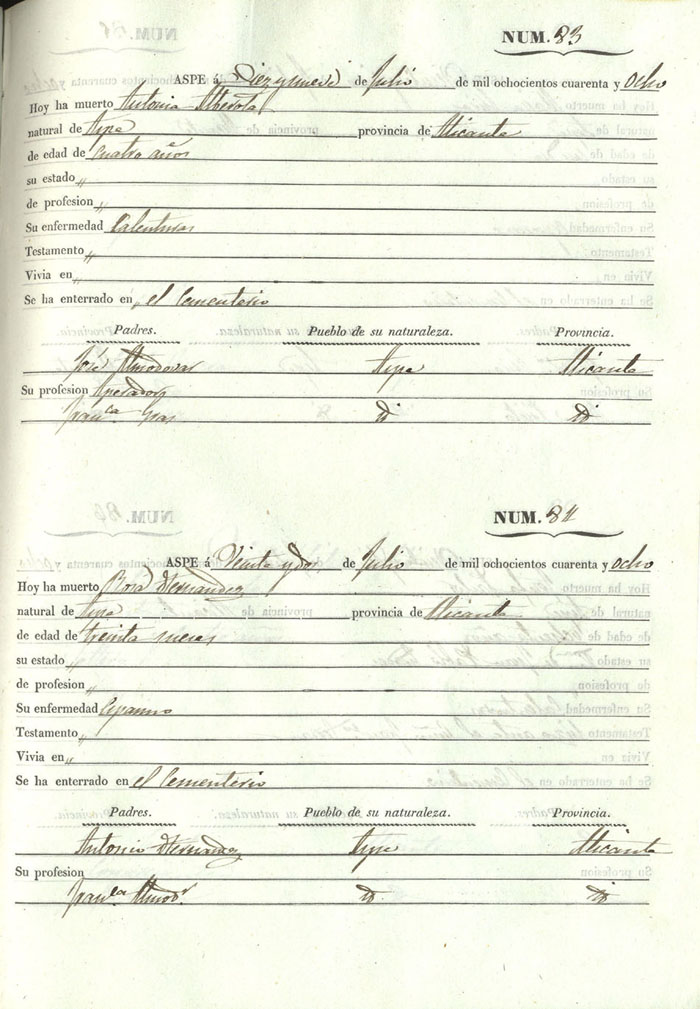 NUM. 83
ASPE á Diez y nueve de Julio de mil ochocientos cuarenta y ocho
Hoy ha muerto Antonia
natural de Aspe provincia de Alicante
de edad de cuatro años
su estado „
de profesion „
Su enfermedad Calenturas
Testamento „
Vivia en „
Se ha enterrado en el Cementerio
Padres. Pueblo de su naturaleza. Provincia.
José Almodovar Aspe Alicante
Su profesion
Fran.ca
NUM. 84
ASPE á Veinte y dos de Julio de mil ochocientos cuarenta y ocho
Hoy ha muerto Rosa Hernandez
natural de Aspe provincia de Alicante
de edad de treinta meses
su estado „
de profesion „
Su enfermedad Espasmo
Testamento „
Vivia en „
Se ha enterrado en el Cementerio
Padres. Pueblo de su naturaleza. Provincia.
Antonio Hernandez Aspe Alicante
Su profesion
Fran.ca Almod.r